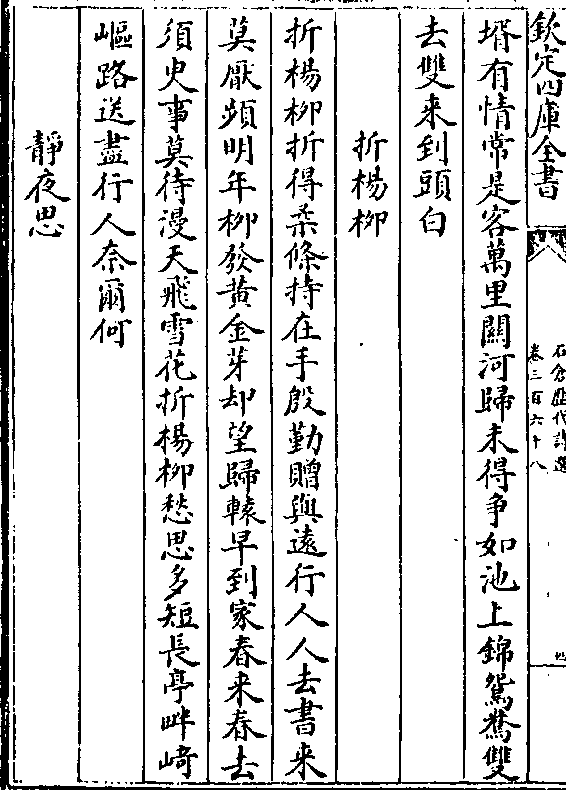 欽定四庫全書
石倉歷代詩選
卷三百六十八
四
壻有情常是客萬里關河歸未得争如池上錦鴛鴦雙
去雙来到頭白
折楊柳
折楊柳折得柔條持在手殷勤贈與逺行人人去書来
莫厭頻明年柳發黄金芽却望歸轅早到家春来春去
須臾事莫待漫天飛雪花折楊柳愁思多短長亭畔﨑
嶇路送盡行人奈爾何
靜夜思